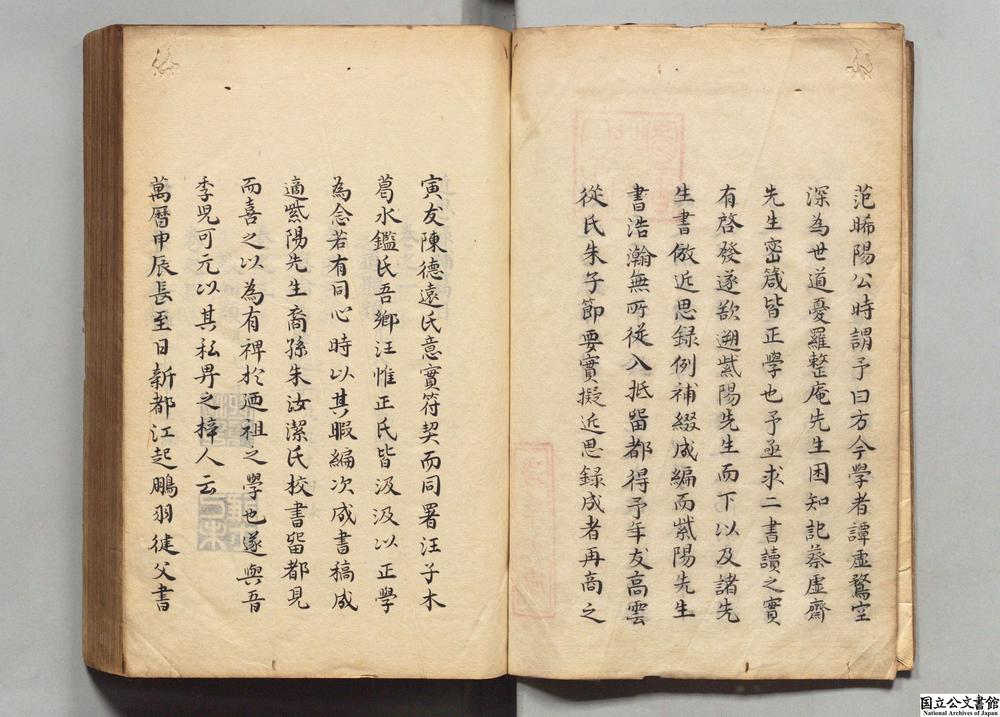 范晞陽公時謂予曰方今學者譚虛騖空
深為世道憂羅整庵先生困知記蔡虛齋
先生密箴皆正學也予亟求二書讀之實
有啓發遂欲遡紫陽先生而下以及諸先
生書倣近思録例補綴成編而紫陽先生
書浩瀚無所從入抵畱都得予年友高雲
從氏朱子節要實擬近思録成者再商之
寅友陳德遠氏意實符契而同署汪子木
葛水鑑氏吾鄉汪惟正氏皆汲汲以正學
為念若有同心時以其暇編次成書稿成
適紫陽先生裔孫朱汝潔氏校書畱都見
而喜之以為有裨於廼祖之學也遂與吾
季児可元以其私畀之梓人云
萬曆甲辰長至日新都江起鵬羽健父書
国立公文書館
National Archives of Japan